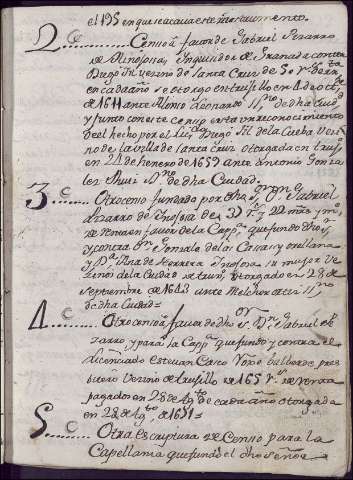 el 195 en que acaua este ynstrumento.
2 C Censo â fauor de Gabriel Pizarro
de Hinojossa, Inquisidor de Granada contra
Diego Gil vezino de Santa Cruz de 50 r.s de r.ta
en cada año se otorgo en truxillo en
de 1611 ante Alonso Leonardo ss.no de dha Ciud.d
y junto con este censo esta un reconocimiento
de el hecho por el Liz.do Diego Gil de la Cueba Vezi
no de la villa de Santa Cruz otorgada en truxi.º
en 24 de henero de 1659 ante Antonio Gonza
lez ss.no de dha Ciudad.
3 C Otro censo fundado por dho s.r Gabriel
Pizarro de Ynojosa de
de renta en fauor de la Capp.nia que fundo dho s.r
y contra D.n Gonzalo de las Casas y orellana
y D.ª Ana de Herrera Ynojosa su mujer Ve
zinos de la Ciudad de trux.º otorgado en 28 de
septiembre de 1643 ante Melchor ss.no
de dha Ciudad=
4 C Otro censo â fauor de dho s.r D.n Gabriel Pi
zarro, y para la Capp.nia que fundo y contra el
Licenciado Esteuan Casco pres
bitero Vezino de truxillo de 1657 r.s de renta
pagado en 28 de Ag.to de cada año otorgada
en 28 de Ag.to de 1651=
5 C Otra escriptura de Censo para la
Capellania que fundo el dho señor